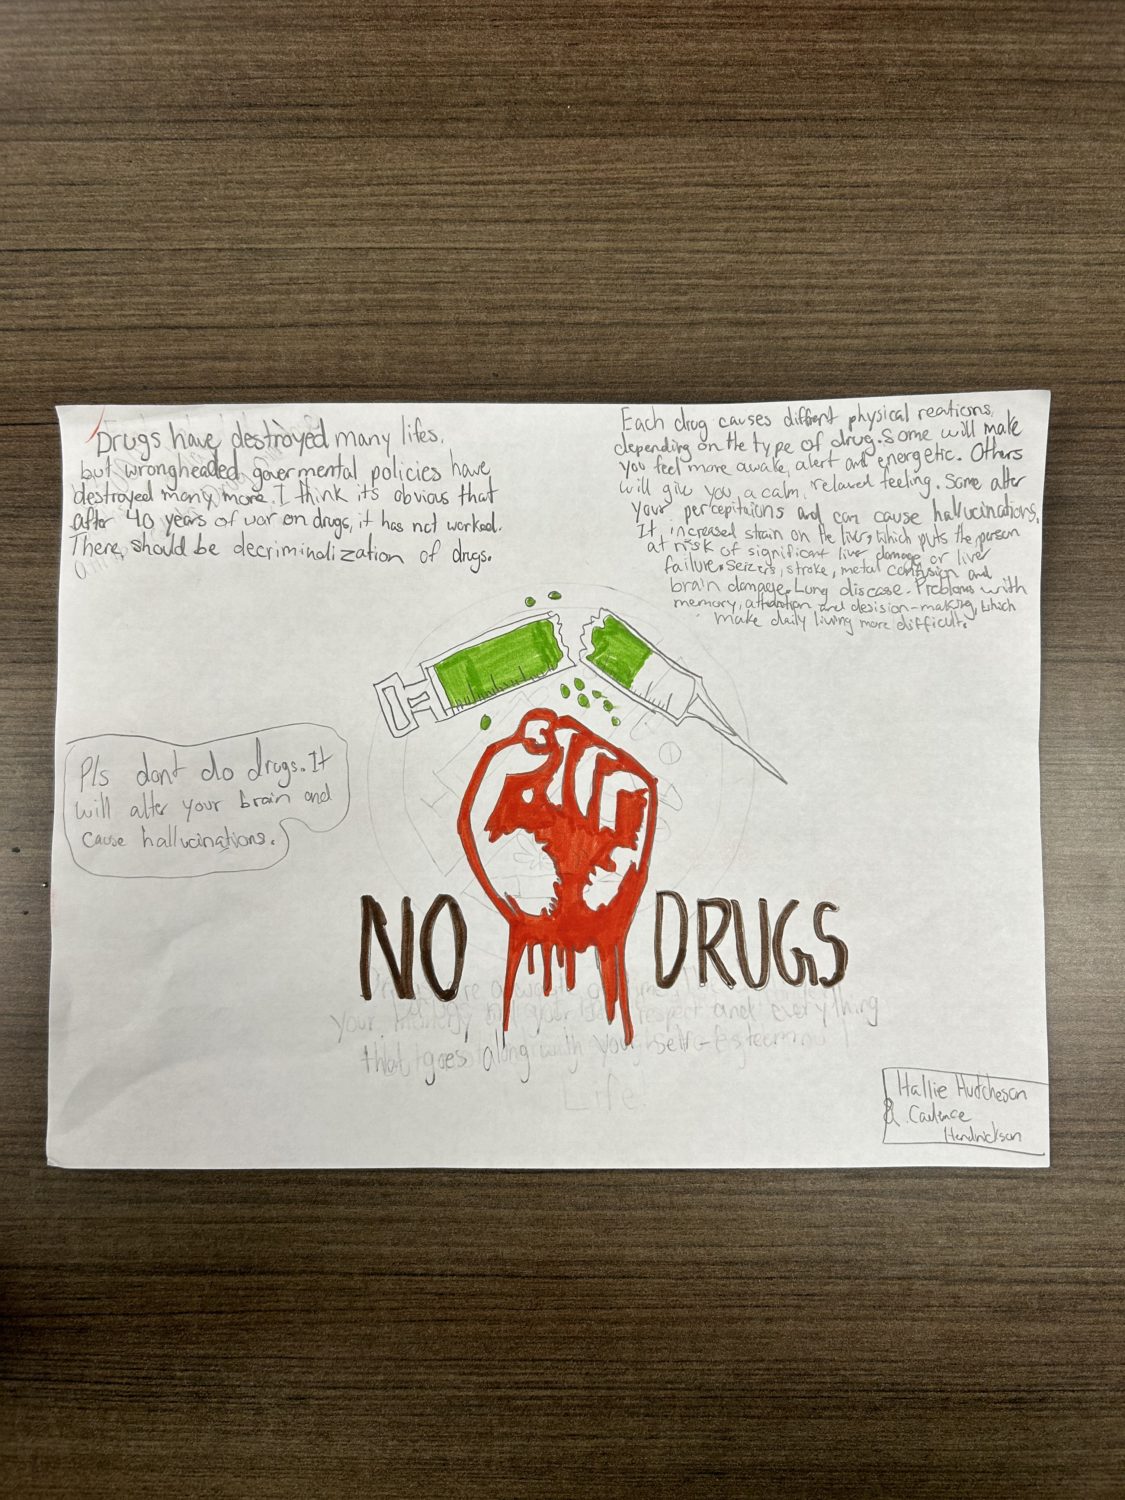 Drugs have destroyed many lifes,
but wrongheaded govermental policies have
destroyed many more. I think it's obvious that
after 40 years of war on drugs, it has not worked.
There should be decriminalization of drugs.
Each drug causes diffrent physical reactions,
depending on the type of drug. Some will make
you feel more awake, alert and energetic. Others
will give you a calm, relaxed feeling. Some alter
your percepitaions and can cause hallucinations.
It increased strain on the liver, which puts the person
at risk of significant liver damage or liver
failure. Seizers, stroke, metal confusion and
brain damage. Lung disease. Problems with
memory, attention and desision-making, which
make daily living more difficult.
Pls dont do drugs. It
will alter your brain and
cause hallucinations.
NO DRUGS
your respect and everything
that goes along with your self-esteem
Life
Hallie Hutcheson
& Cadence
Hendrickson